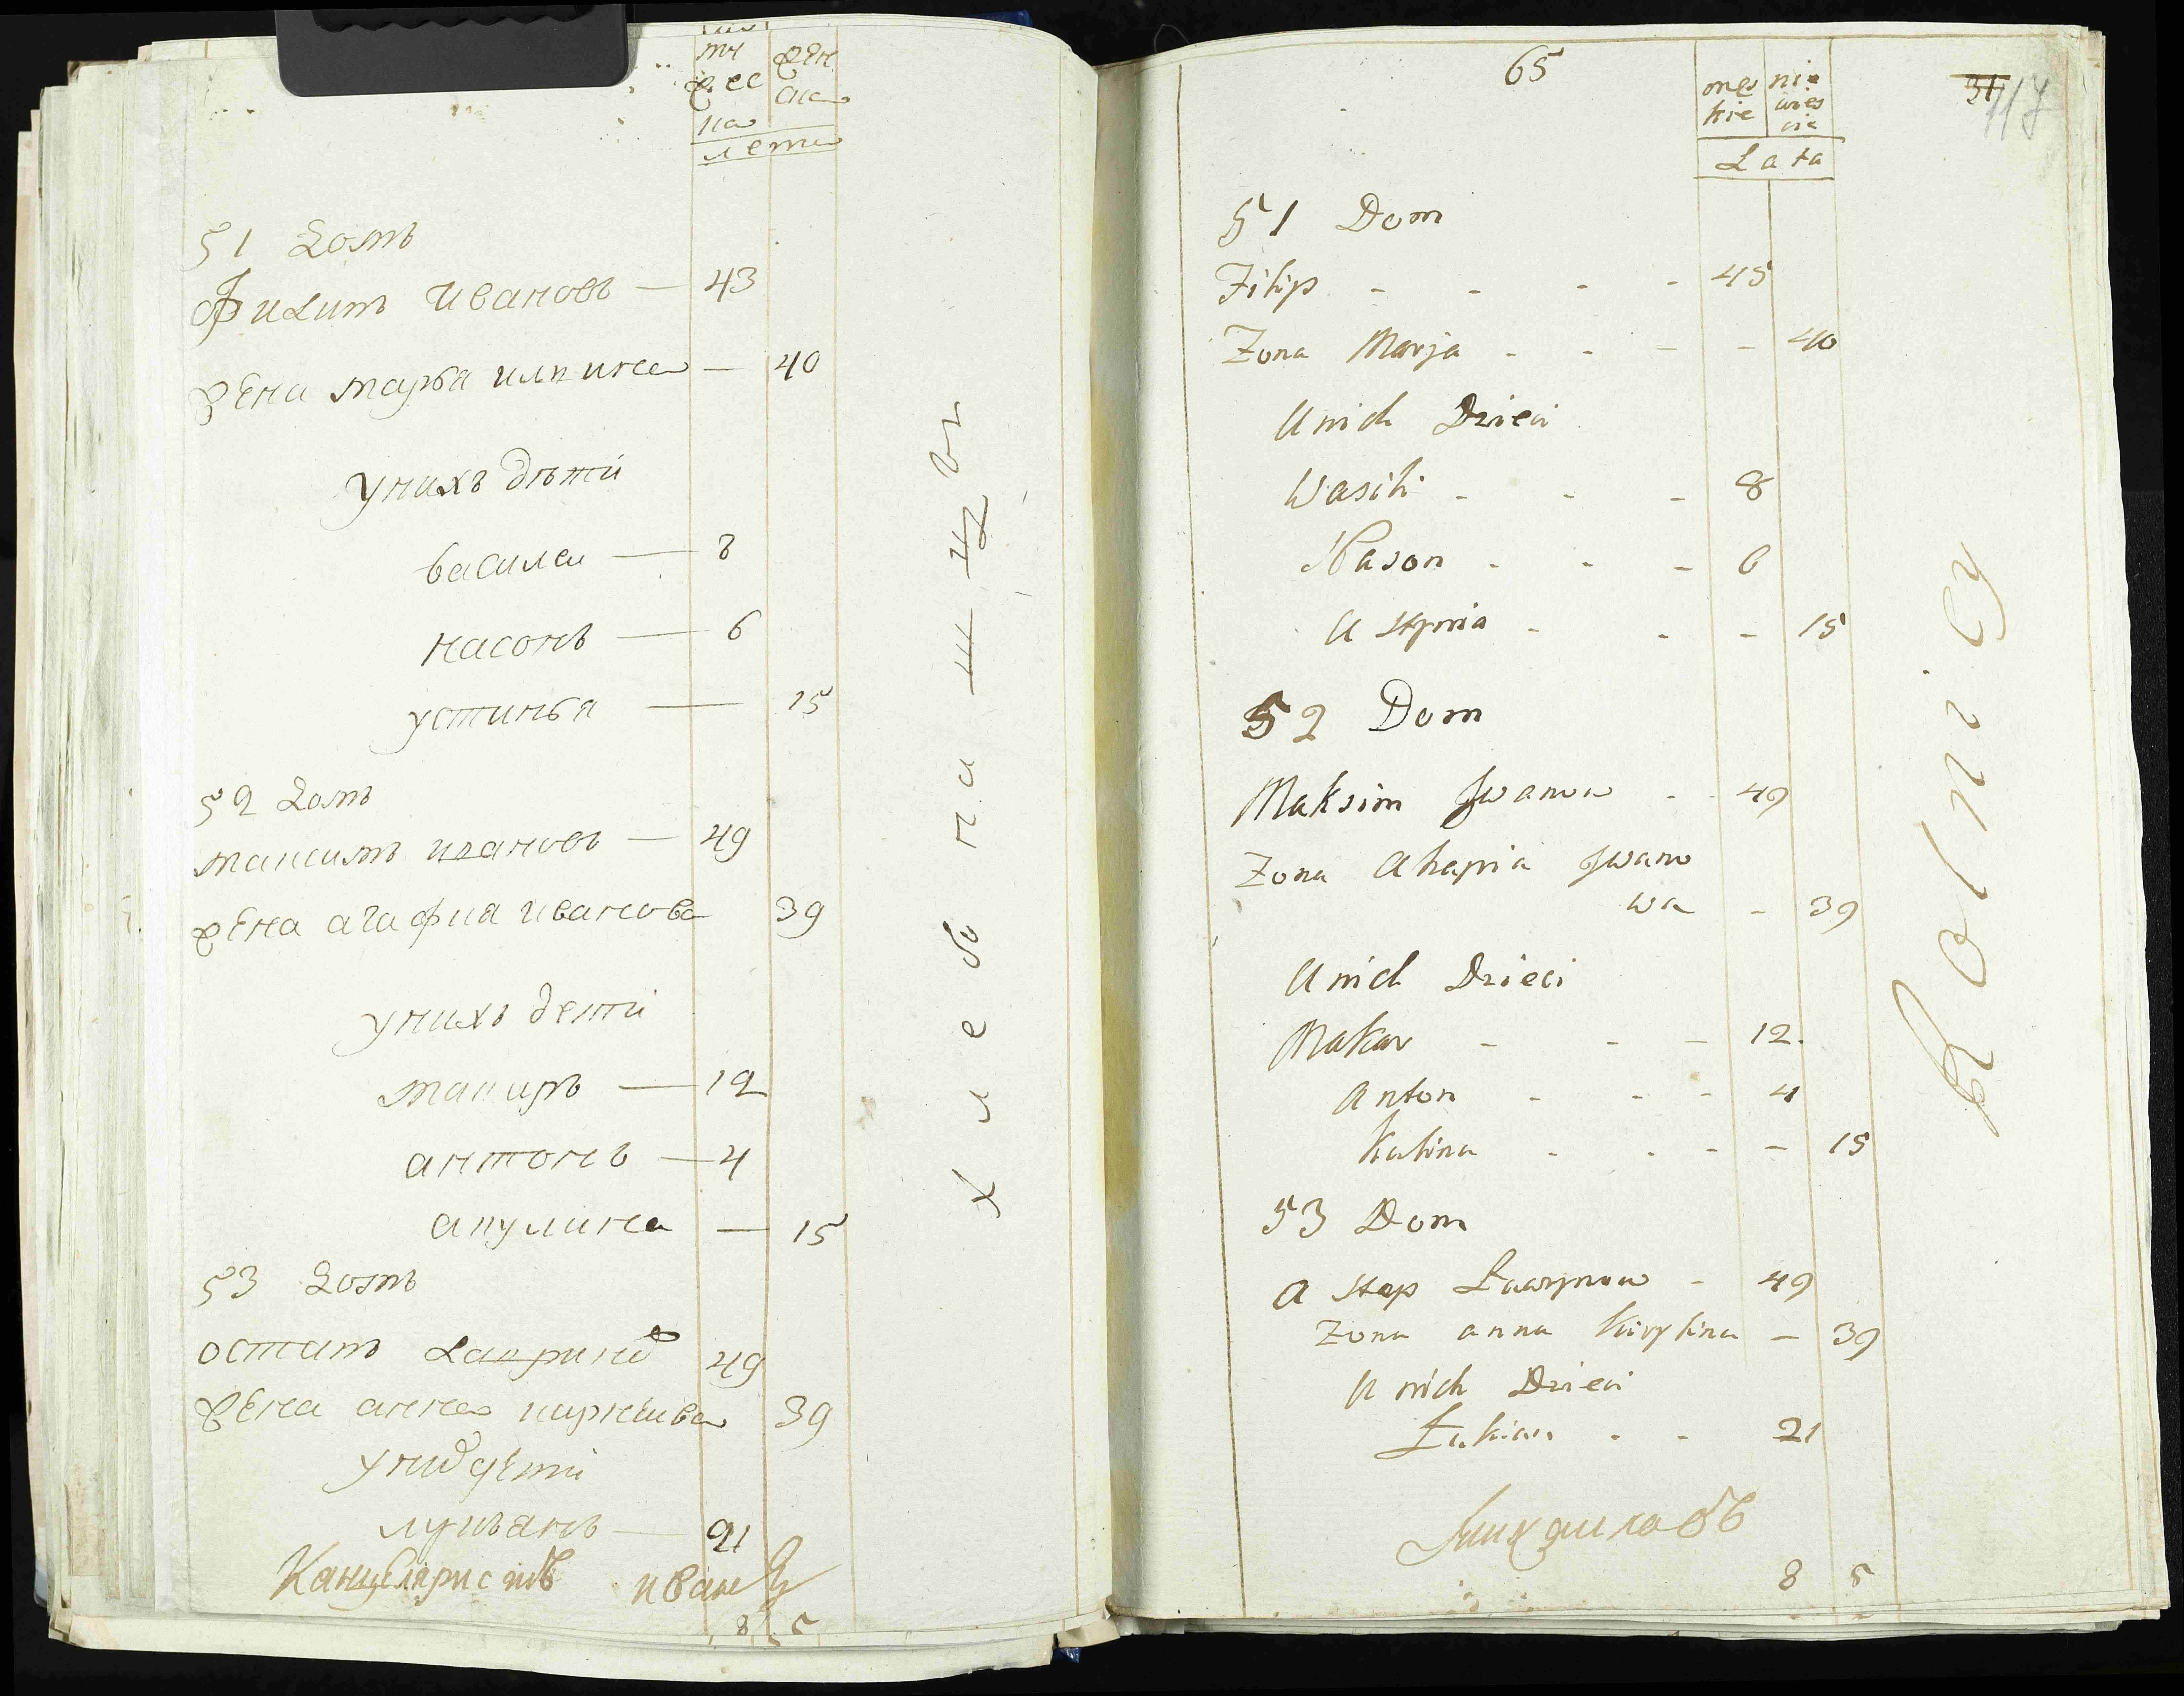 на
лета
51 Домъ
Филипъ Ивановъ — 43
жена марья илина — 40
унихъ дѣти
василеи — 8
насонъ — 6
устинья — 15
52 Домъ
максимъ ивановъ — 49
жена агафия иванова 39
унихъ дети
макаръ — 12
антонъ — 4
акулина — 15
53 Домъ
остапъ 49
жена анна 39
дети
лукьянъ — 21
Канцеляристъ иванъ
8 5
хлебопашцы
65
męs kie
nie wies cie
Lata
31
117
51 Dom
Filip - - - - 45
Zona Marja - - - - 40
U nich Dzieci
Wasili - - - 8
Nason - - - 6
Ustynia - - - 15
52 Dom
Maksim Jwanow - - 49
Zona Ahapia Jwano
wa - 39
U nich Dzieci
Makar - - - 12.
Anton - - - 4
Kulina - - - - 15
53 Dom
Astap Ławrynow - 49
Zona anna Kirylina - 39
U nich Dzieci
Łukian - - 21
8 5
Rolnicy